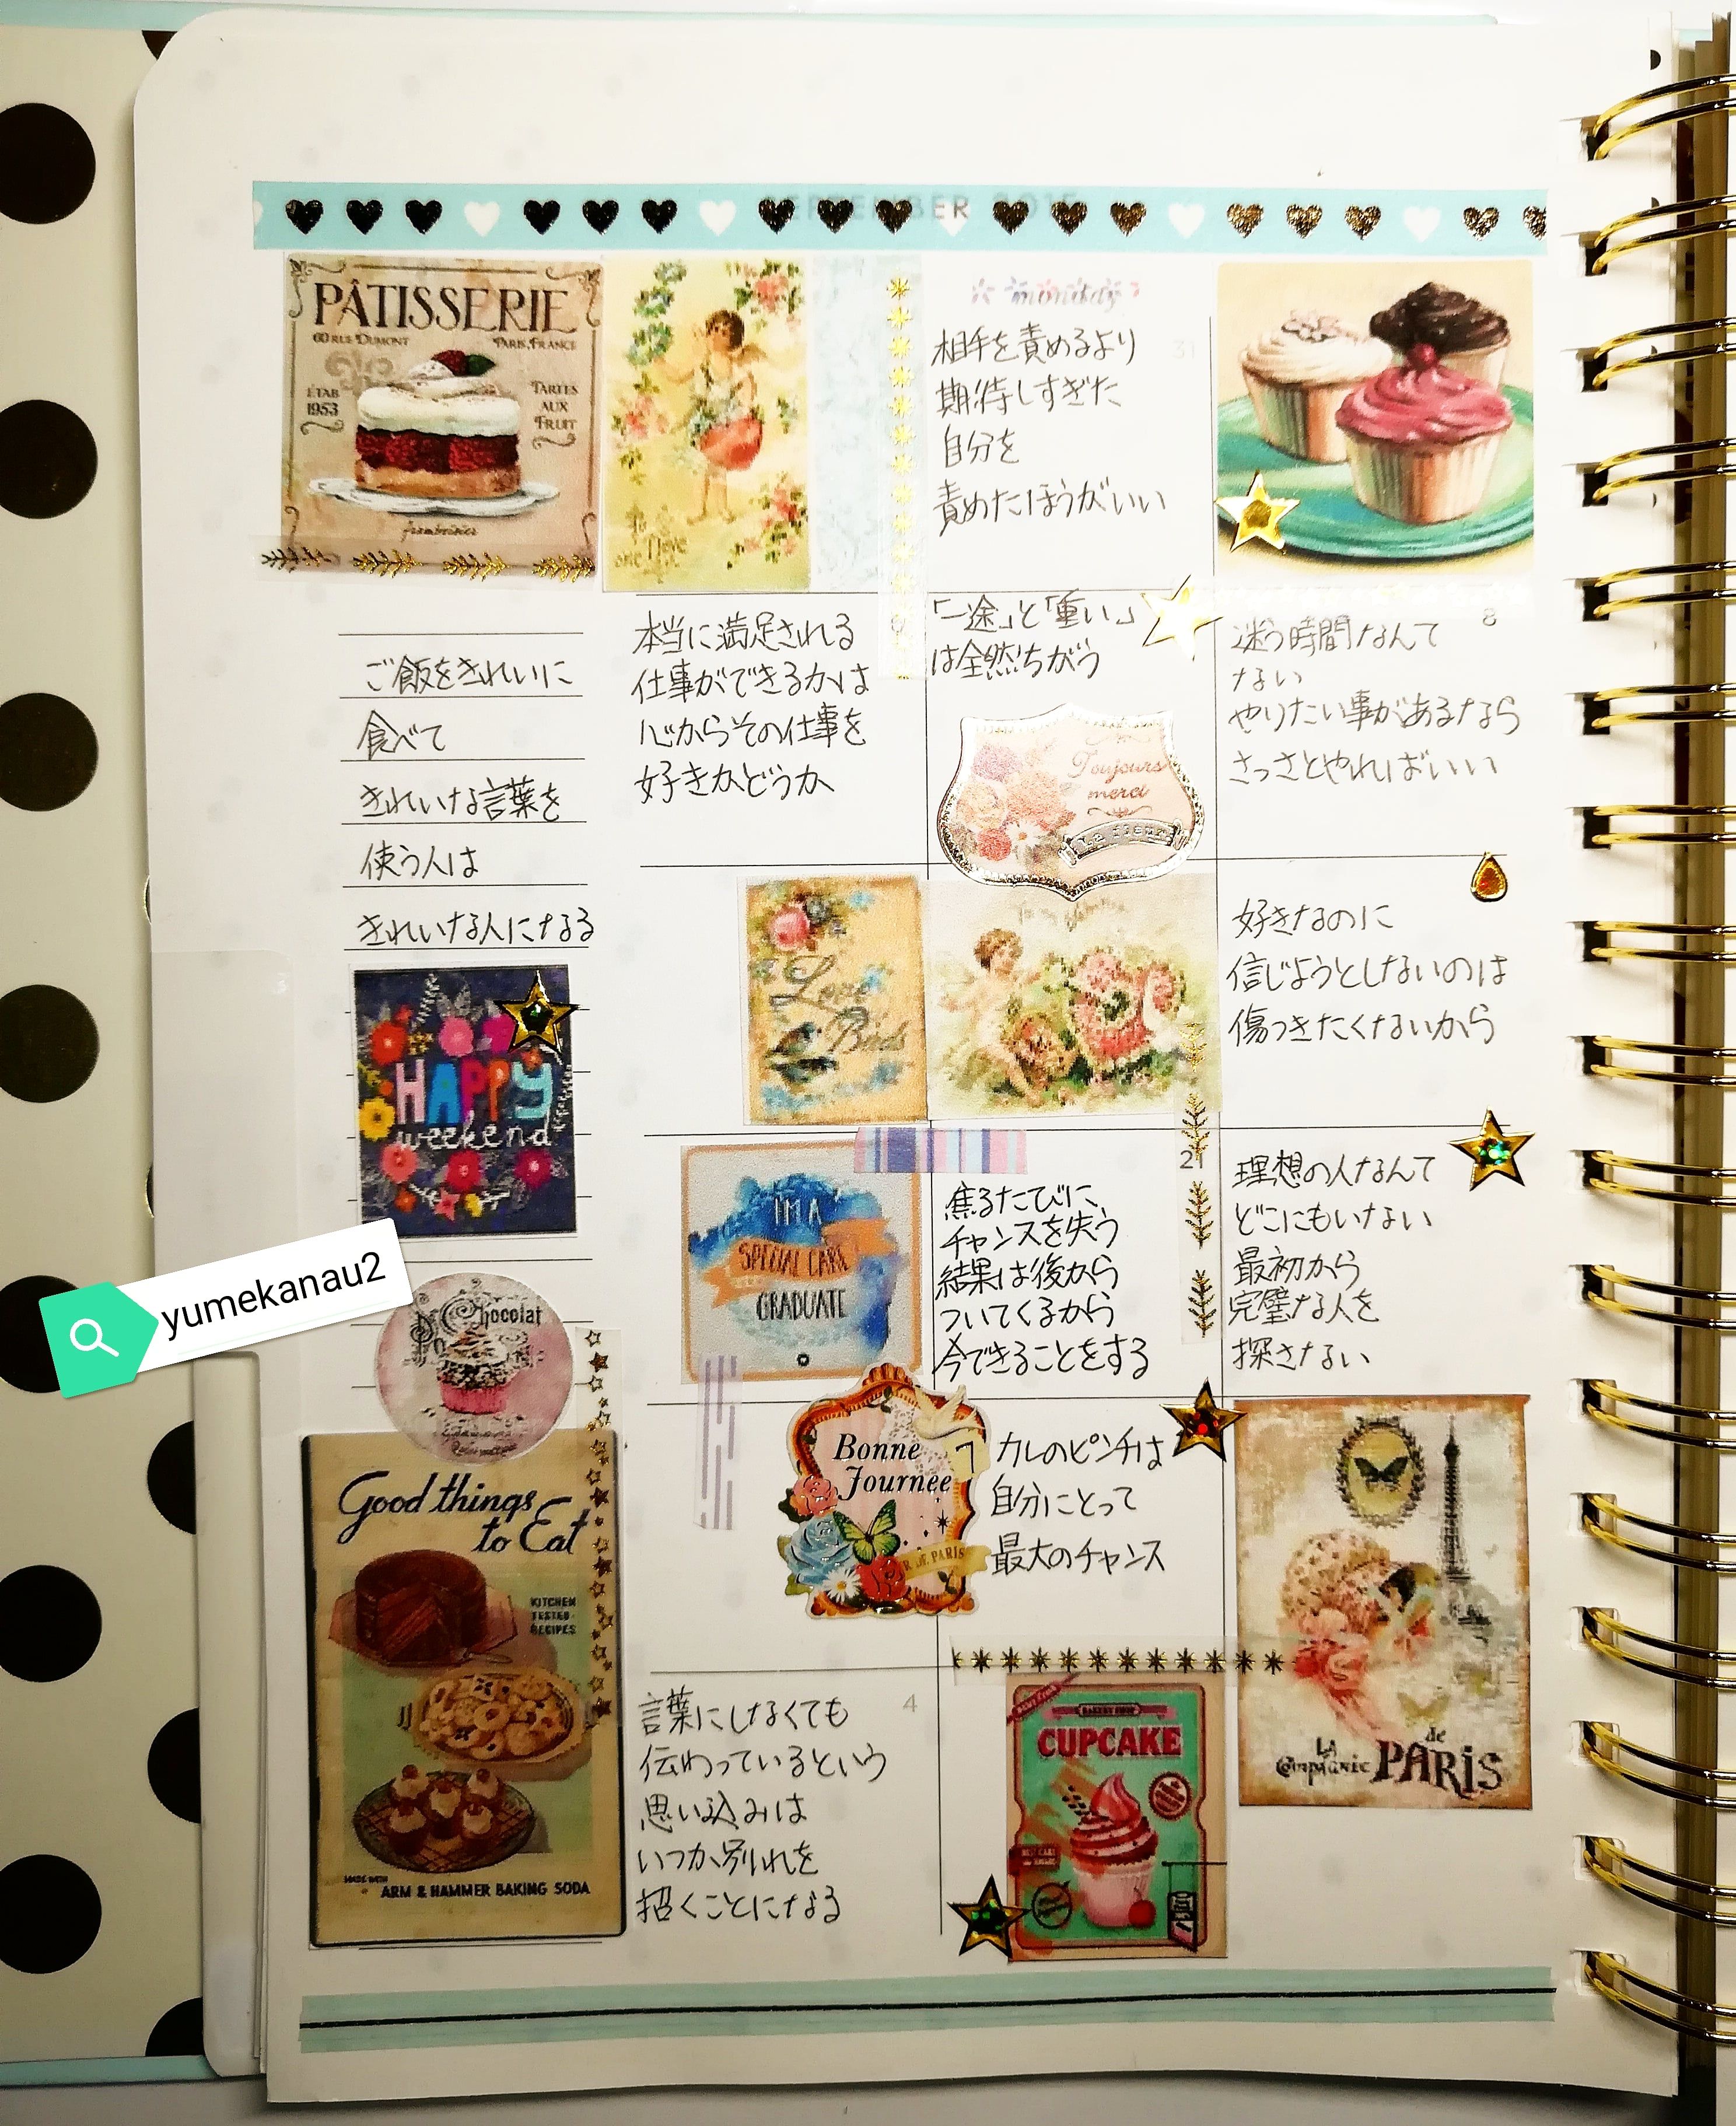 PÂTISSERIE
60 RUE DUMONT
PARIS, FRANCE
ETAB
1953
TARTES
AUX
FRUIT
monday
相手を責めるより
期待しすぎた
自分を
責めたほうがいい
31
ご飯をきれいに
食べて
きれいな言葉を
使う人は
きれいな人になる
本当に満足される
仕事ができるかは
心からその仕事を
好きかどうか
「一途」と「重い」
は全然ちがう
Toujours
merci
La fleur
8
迷う時間なんて
ない
やりたい事があるなら
さっさとやればいい
HAPPY
weekend
Love
Birds
好きなのに
信じようとしないのは
傷つきたくないから
yumekanau2
Chocolat
I'M A
SPECIAL CARE
GRADUATE
焦るたびに、
チャンスを失う
結果は後から
ついてくるから
今できることをする
21
理想の人なんて
どこにもいない
最初から
完璧な人を
探さない
Good things
to Eat
KITCHEN
TESTED
RECIPES
MADE WITH
ARM & HAMMER BAKING SODA
Bonne
Journée
DE PARIS
7
カレのピンチは
自分にとって
最大のチャンス
LA
Compagnie de
PARIS
4
言葉にしなくても
伝わっているという
思い込みは
いつか別れを
招くことになる
BAKERY SHOP
CUPCAKE